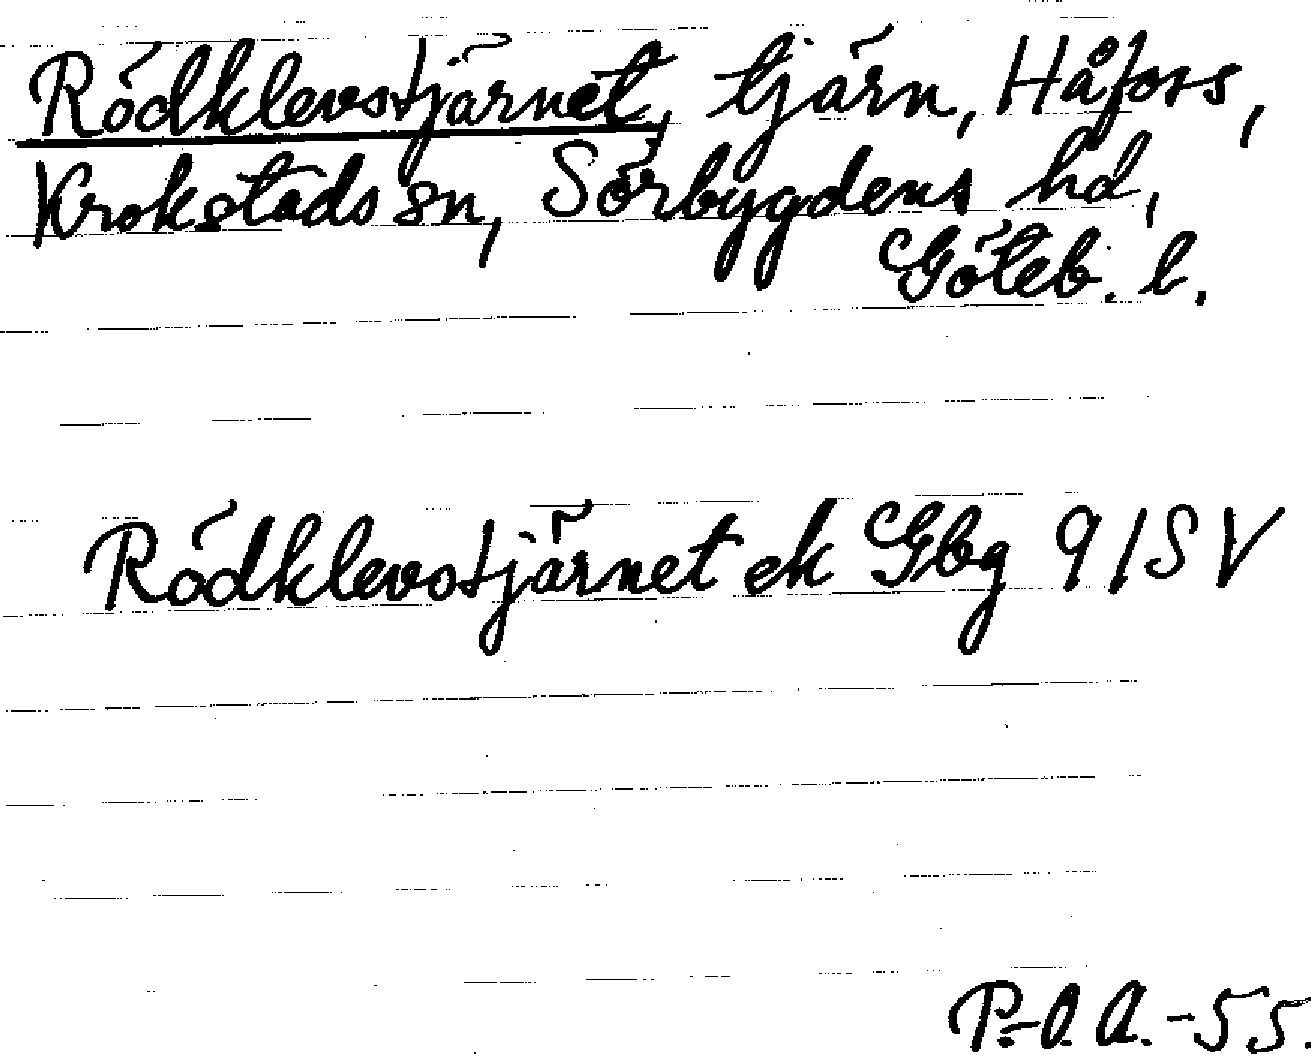 Rödklevstjärnet, tjärn, Håfors,
Krokstads sn, Sörbygdens hd,
Göteb. l.
Rödklevstjärnet ek Gbg 9 1 SV
P.-O. A. -55.